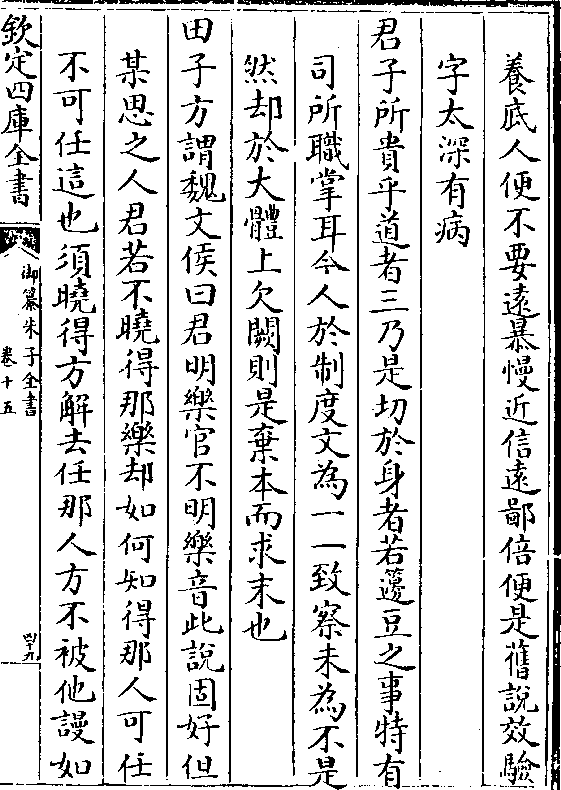 養底人便不要遠暴慢近信遠鄙倍便是舊說效驗
字太深有病
君子所貴乎道者三乃是切於身者若籩豆之事特有
司所職掌耳今人於制度文為一一致察未為不是
然却於大體上欠闕則是棄本而求末也
田子方謂魏文侯曰君明樂官不明樂音此說固好但
某思之人君若不曉得那樂却如何知得那人可任
不可任這也須曉得方解去任那人方不被他謾如
欽定四庫全書
御纂朱子全書
卷十五
四十九